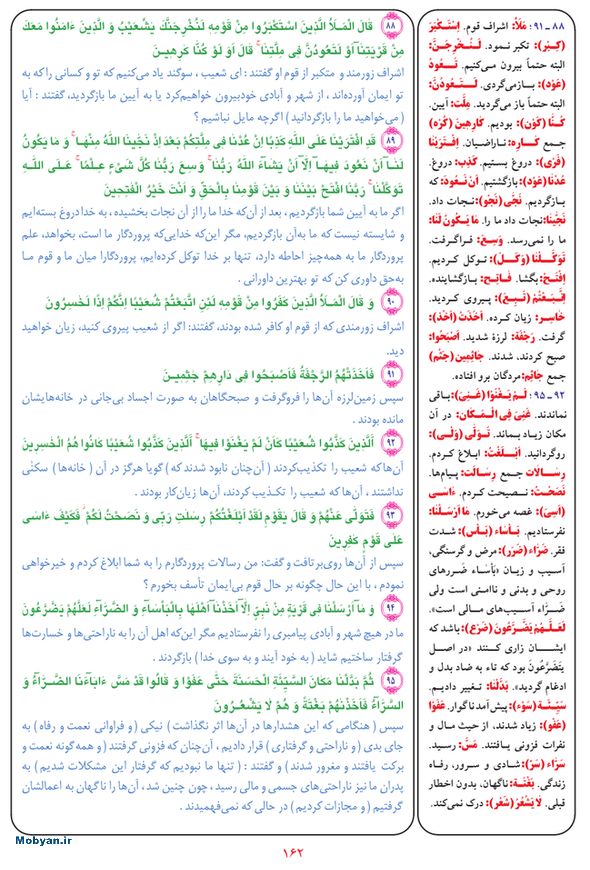 ۸۸ قَالَ الْمَلَأُ الَّذِینَ اسْتَکْبَرُوا مِنْ قَوْمِهِ لَنُخْرِجَنَّکَ یَشُعَیْبُ وَ الَّذِینَ ءَامَنُوا مَعَکَ
مِنْ قَرْیَتِنَآ أَوْ لَتَعُودُنَّ فِی مِلَّتِنَا قَالَ أَوَ لَوْ کُنَّا کَرِهِینَ
اشراف زورمند و متکبر از قوم او گفتند : ای شعیب ، سوگند یاد می‌کنیم که تو و کسانی را که به
تو ایمان آورده‌اند ، از شهر و آبادی خود بیرون خواهیم‌کرد یا به آیین ما بازگردید، گفتند : آیا
( می‌خواهید ما را بازگردانید ) اگرچه مایل نباشیم ؟
۸۹ قَدِ افْتَرَیْنَا عَلَی اللّٰهِ کَذِبًا إِنْ عُدْنَا فِی مِلَّتِکُمْ بَعْدَ إِذْ نَجَّینَا اللّٰهُ مِنْهَا وَ مَا یَکُونُ
لَنَآ أَنْ نَعُودَ فِیهَآ إِلَّآ أَنْ یَشَآءَ اللّٰهُ رَبُّنَا وَسِعَ رَبُّنَا کُلَّ شَیْءٍ عِلْمًا عَلَی اللّٰهِ
تَوَکَّلْنَا رَبَّنَا افْتَحْ بَیْنَنَا وَ بَیْنَ قَوْمِنَا بِالْحَقِّ وَ أَنْتَ خَیْرُ الْفَتِحِینَ
اگر ما به آیین شما بازگردیم ، بعد از آن‌که خدا ما را از آن نجات بخشیده ، به خدا دروغ بسته‌ایم
و شایسته نیست که ما به‌آن بازگردیم، مگر این‌که خدایی‌که پروردگار ما است، بخواهد، علم
پروردگار ما به همه‌چیز احاطه دارد، تنها بر خدا توکل کرده‌ایم، پروردگارا میان ما و قوم ما
به‌حق داوری کن که تو بهترین داورانی .
۹۰ وَ قَالَ الْمَلَأُ الَّذِینَ کَفَرُوا مِنْ قَوْمِهِ لَئِنِ اتَّبَعْتُمْ شُعَیْبًا إِنَّکُمْ إِذًا لَخَسِرُونَ
اشراف زورمندی که از قوم او کافر شده بودند، گفتند: اگر از شعیب پیروی کنید، زیان خواهید
دید.
۹۱ فَأَخَذَتْهُمُ الرَّجْفَةُ فَأَصْبَحُوا فِی دَارِهِمْ جَثِمِینَ
سپس زمین‌لرزه آن‌ها را فروگرفت و صبحگاهان به صورت اجساد بی‌جانی در خانه‌هایشان
مانده بودند .
۹۲ أَلَّذِینَ کَذَّبُوا شُعَیْبًا کَأَنْ لَمْ یَغْنَوْا فِیهَا أَلَّذِینَ کَذَّبُوا شُعَیْبًا کَانُوا هُمُ الْخَسِرِینَ
آن‌ها که شعیب را تکذیب‌کردند ( آن‌چنان نابود شدند که ) گویا هرگز در آن ( خانه‌ها ) سکنٰی
نداشتند ، آن‌ها که شعیب را تکـذیب کردند، آن‌ها زیان‌کار بودند .
۹۳ فَتَوَلَّی عَنْهُمْ وَ قَالَ یَقَوْمِ لَقَدْ أَبْلَغْتُکُمْ رِسَلَتِ رَبِّی وَ نَصَحْتُ لَکُمْ فَکَیْفَ ءَاسَی
عَلَی قَوْمٍ کَفِرِینَ
سپس از آن‌ها روی‌برتافت و گفت: من رسالات پروردگارم را به شما ابلاغ کردم و خیرخواهی
نمودم ، با این حال چگونه بر حال قوم بی‌ایمان تأسف بخورم ؟
۹۴ وَ مَآ أَرْسَلْنَا فِی قَرْیَةٍ مِنْ نَبِیٍّ إِلَّآ أَخَذْنَآ أَهْلَهَا بِالْبَأْسَآءِ وَ الضَّرَّآءِ لَعَلَّهُمْ یَضَّرَّعُونَ
ما در هیچ شهر و آبادی پیامبری را نفرستادیم مگر این‌که اهل آن را به ناراحتی‌ها و خسارت‌ها
گرفتار ساختیم شاید ( به خود آیند و به سوی خدا ) بازگردند .
۹۵ ثُمَّ بَدَّلْنَا مَکَانَ السَّیِّئَةِ الْحَسَنَةَ حَتَّی عَفَوْا وَ قَالُوا قَدْ مَسَّ ءَابَآءَنَا الضَّرَّآءُ وَ
السَّرَّآءُ فَأَخَذْنَهُمْ بَغْتَةً وَ هُمْ لَا یَشْعُرُونَ
سپس ( هنگامی که این هشدارها در آن‌ها اثر نگذاشت ) نیکی ( و فراوانی نعمت و رفاه ) به
جای بدی ( و ناراحتی و گرفتاری ) قرار دادیم ، آن‌چنان که فزونی گرفتند ( و همه‌گونه نعمت و
برکت یافتند و مغرور شدند ) و گفتند : ( تنها ما نبودیم که گرفتار این مشکلات شدیم ) به
پدران ما نیز ناراحتی‌های جسمی و مالی رسید ، چون چنین شد ، آن‌ها را ناگهان به اعمالشان
گرفتیم ( و مجازات کردیم ) در حالی که نمی‌فهمیدند .
۸۸ - ۹۱ : مَلَأُ: اشراف قوم. إِسْتَکْبَرَ
(کِبْر): تکبر نمـود. لَـنُـخْرِجَـنَّ:
البته حتمـاً بیرون می‌کنیم. تَـعُـودُ
(عَوْد): بـازمی‌گردی. لَـتَـعُودُنَّ:
البته حتماً باز می‌گردید. مِلَّت: آیین.
کُنَّا (کَوْن): بودیم. کارِهین (کُره)
جمع کـارِه: ناراضیـان. إِفْـتَرَیْنَا
(فَرْی): دروغ بستیم. کَذِب: دروغ.
عُدْنَا(عَوْد): بازگشتیم. أَنْ نَعُودَ: که
بازگردیم. نَجَّی (نَجْو): نجات داد.
نَجَّینَا: نجات داد ما را. مَا یَـکُونُ لَنَا:
ما را نمی‌رسد. وَسِعَ: فـراگـرفـت.
تَوَکَّلْنَا (وَکْل): تـوکل کـردیم.
إِفْتَحْ: بگشا. فَـاتِح: بـازگشاینده.
إِتَّبَعْتُمْ (تَبِیعْ): پیـروی کـردید.
خَاسِر: زیان کرده. أَخَذَتْ (أَخْذ):
گرفت. رَجْفَة: لرزهٔ شدید. أَصْبَحُوا:
صبح کردند، شدند. جَاثِمِین (جَثْم)
جمع جَاثِم: مردگان برو افتاده.
۹۲ - ۹۵ : لَـمْ یَـغْنَوْا (غَنِیَ): بـاقی
نماندند. غَنِیَ فِی الْـمَکَان: در آن
مکان زیاد بماند. تَـوَلَّی (وَلْی):
روگردانید. أَبْلَغْتُ: ابـلاغ کـردم.
رِسـالات جمع رِسالَت: پیـام‌ها.
نَصَحْتُ: نصیحت کـردم. ءَاسَی
(أَسِیَ): غصه می‌خورم. مَا أَرْسَلْنَا:
نفرستادیم. بَأْساء (بَأْس): شـدت
فقر. ضَرَّاء (ضَرّ): مرض و گرسنگی،
آسیب و زیـان «بَأسَـاء ضـررهای
روحی و بدنی و ناامنی است ولی
ضَـرَّاء آسیب‌های مـالی است».
لَعَلَّـهُمْ یَضَّـرَّعُونَ (ضَرْع): باشد که
ایشـان زاری کـنند «در اصـل
یَتَضَرَّعُونَ بود که تاء به ضاد بدل و
ادغام گردید». بَدَّلْنَا: تـغییر دادیـم.
سَیِّـئَـة (سُوْء): پیش‌آمد ناگوار. عَفَوْا
(عَفْو): زیاد شدند، از حیث مـال و
نفرات فزونی یـافتند. مَسَّ: رسیـد.
سَرَّاء (سَرّ): شـادی و سـرور، رفـاه
زندگی. بَغْتَـة: ناگهان، بدون اخطار
قبلی. لَا یَشْعُرُ (شَعْر): درک نمی‌کند.
Mobyan.ir
۱۶۲